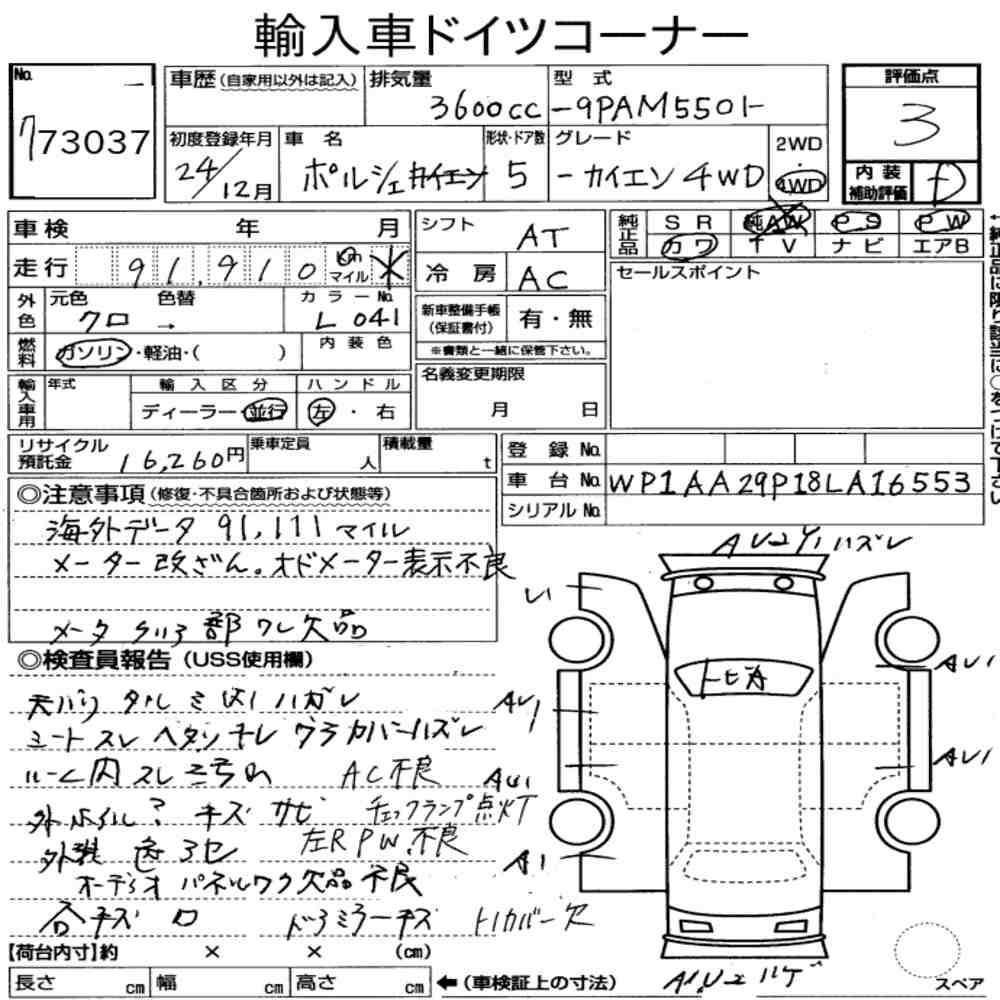 輸入車ドイツコーナー
No.
773037
車歴(自家用以外は記入)
排気量
3600cc
型式
-9PAM5501-
評価点
3
初度登録年月
24/12月
車名
ポルシェカイエン
形状・ドア数
5
グレード
-カイエン 4WD
2WD
・
4WD
内装
補助評価
D
車検 年 月
シフト
AT
純正品
SR 純AW PS PW
カワ TV ナビ エアB
走行 91,910 km マイル *
冷房
AC
セールスポイント
外色
元色 色替
クロ →
カラーNo.
L 041
新車整備手帳
(保証書付)
有・無
※書類と一緒に保管下さい。
燃料
ガソリン・軽油・( )
内装色
輸入車用
年式
輸入区分
ディーラー・並行
ハンドル
左・右
名義変更期限
月 日
リサイクル
預託金 16,260円
乗車定員
人
積載量
t
登録No.
車台No. WP1AA29P18LA16553
シリアルNo.
◎注意事項(修復・不具合箇所および状態等)
海外データ 91,111マイル
メーター改ざん。オドメーター表示不良
メータ 部 ワレ欠品
◎検査員報告(USS使用欄)
天バリ タルミ ハガレ
シートスレ ヘタリ キレ カバーハズレ
ルーム内スレ AC不良
キズ サビ チェックランプ点灯
外装 色アセ 左RPW不良
オーディオパネルワク欠品 不良
ドアミラーキズ トノカバー欠
AU2 ハズレ
AU1
AU1
A1
【荷台内寸】約 × × (cm)
長さ cm 幅 cm 高さ cm
←(車検証上の寸法)
スペア